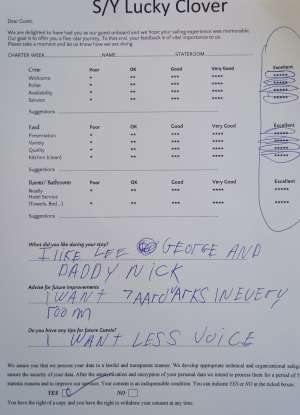 S/Y Lucky Clover
Dear Guest,
We are delighted to have had you as our guest onboard and we hope your sailing experience was memorable.
Our goal is to offer you a five-star journey. To that end, your feedback is of vital importance to us.
Please take a moment and let us know how we are doing.
CHARTER WEEK NAME STATEROOM
Crew Poor OK Good Very Good Excellent
Welcome * ** *** **** *****
Polite * ** *** **** *****
Availability * ** *** **** *****
Service * ** *** **** *****
Suggestions
Food Poor OK Good Very Good Excellent
Presentation * ** *** **** *****
Variety * ** *** **** *****
Quality * ** *** **** *****
Kitchen (clean) * ** *** **** *****
Suggestions
Rooms/ Bathrooms Poor OK Good Very Good Excellent
Ready * ** *** **** *****
Hotel Service
(Towels, Bed...) * ** *** **** *****
Suggestions
What did you like during your stay?
I LIKE LEE GEORGE AND
DADDY NICK
Advise for future improvements
I WANT 7 AARDVARKS IN EVERY
ROOM
Do you have any tips for future Guests?
I WANT LESS VOICE
We assure you that we process your data in a lawful and transparent manner. We develop appropriate technical and organizational
assure the security of your data. After the and encryption of your personal data we intend to process them for a period of
statistic reasons and to improve our services. Your consent is an indispensable condition. You can indicate YES or NO at the ticked boxes.
YES NO
You have the right of a copy and you have the right to withdraw your consent at any time.